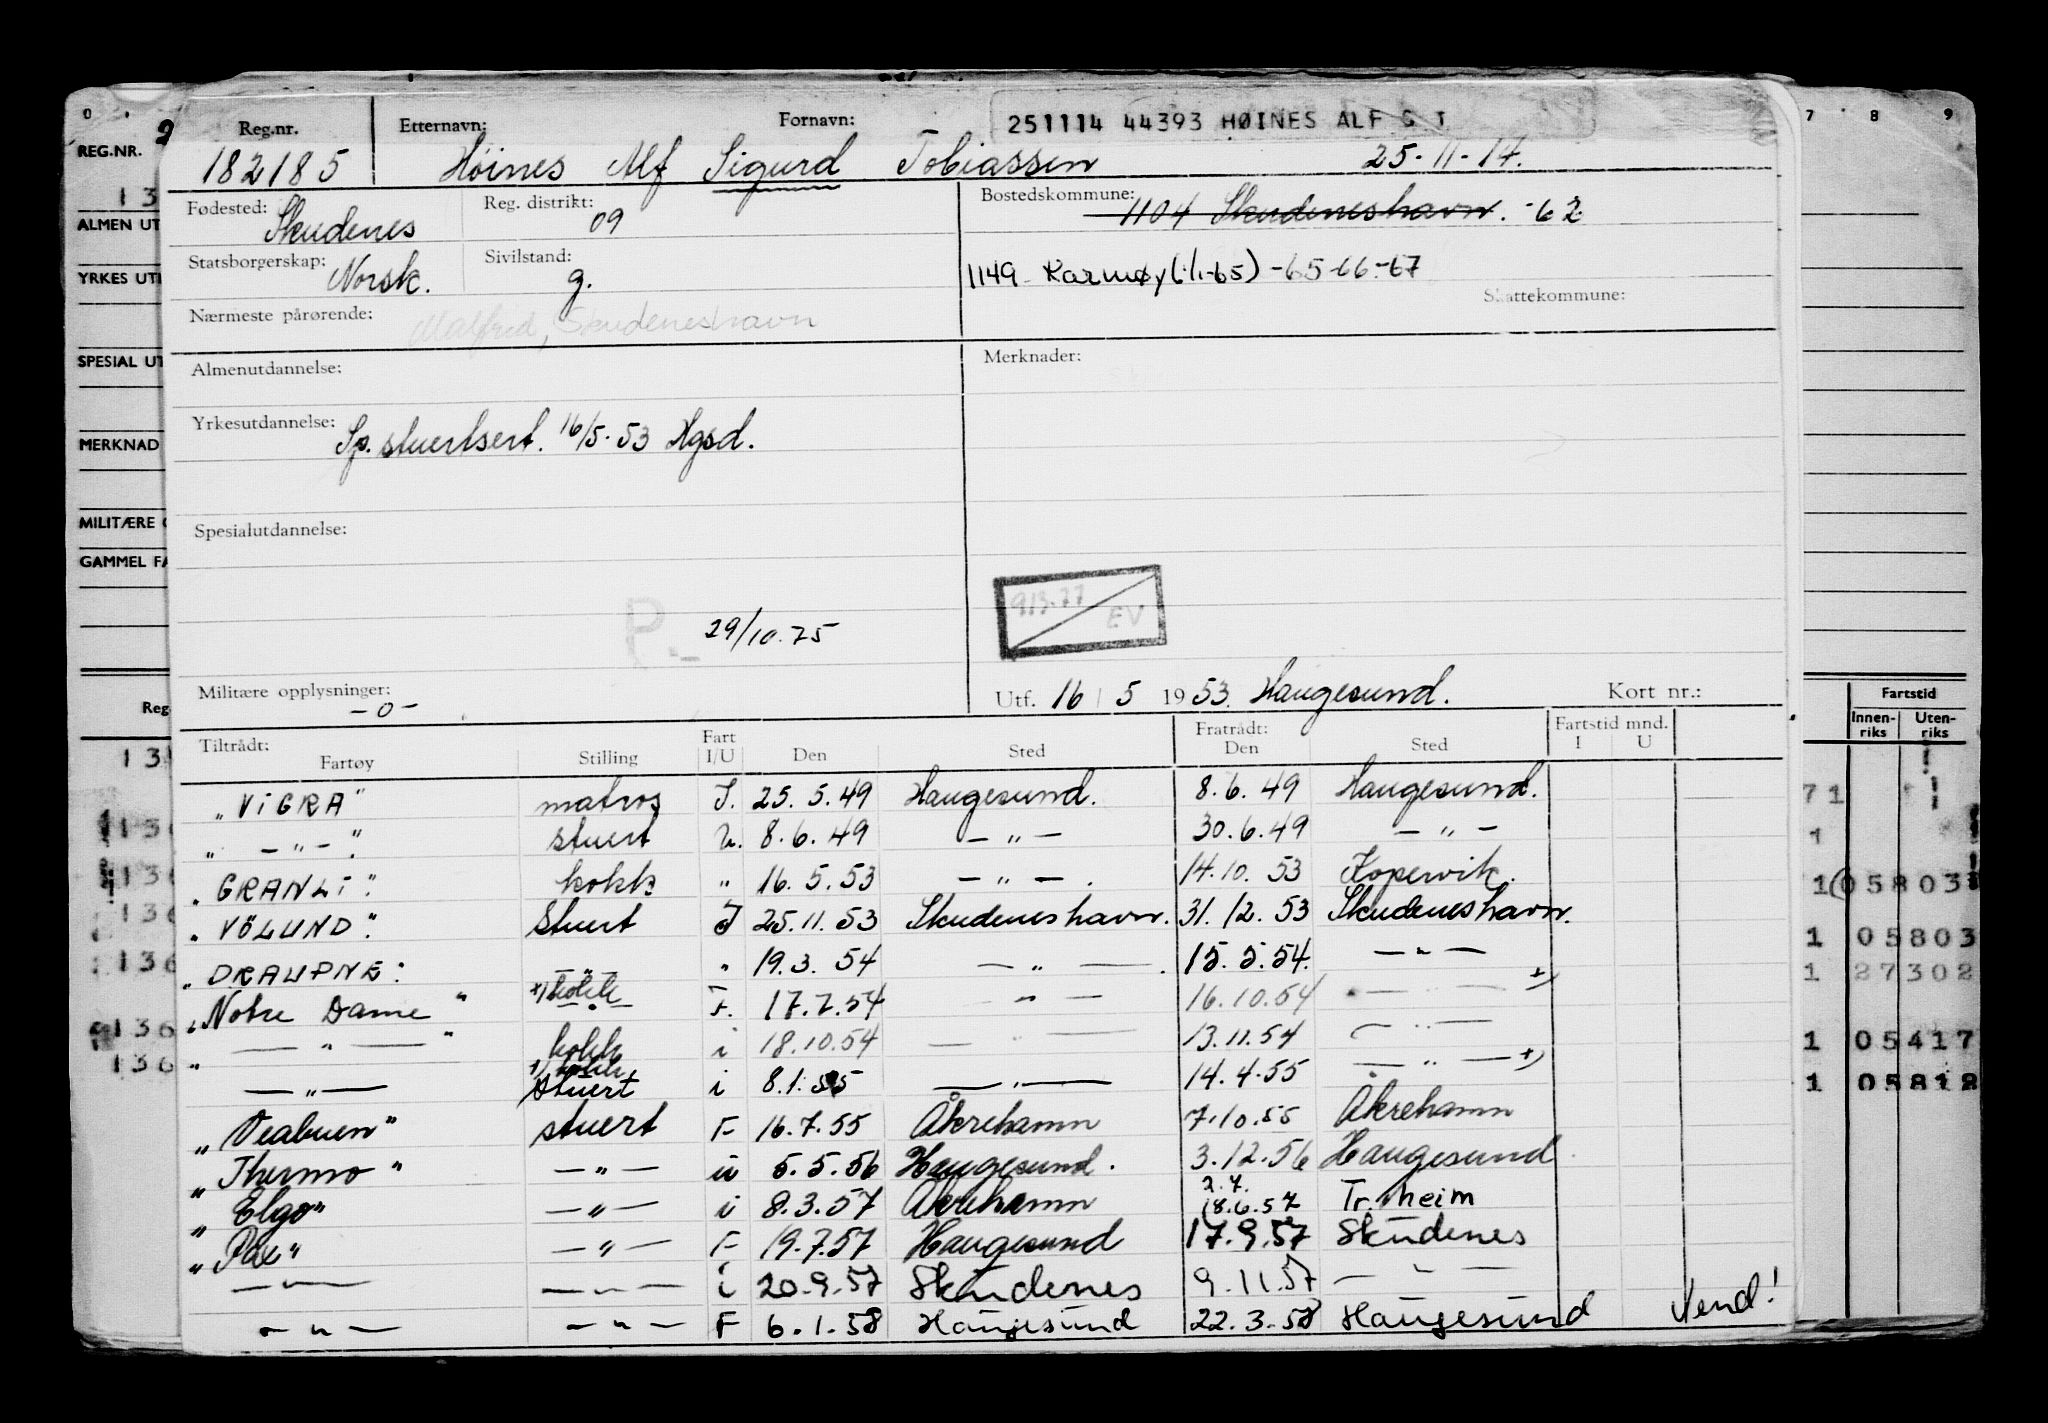 Reg.nr. Etternavn: Fornavn: 251114 44393 HØINES ALF S T
182185 Höines Alf Sigurd Tobiassen 25-11-14.
Fødested: Skudenes Reg. distrikt: 09 Bostedskommune: 1104 Skudeneshavn. -62
Statsborgerskap: Norsk. Sivilstand: g. 1149 Karmøy (1/1-65) -65-66-67
Nærmeste pårørende: Malfred, Skudeneshavn Skattekommune:
Almenutdannelse: Merknader:
Yrkesutdannelse: Sp. stuertsert. 16/5-53 Hgsd.
Spesialutdannelse:
P.- 29/10.75 EV
Militære opplysninger: -0- Utf. 16 / 5 1953 Haugesund. Kort nr.:
Tiltrådt: Fratrådt: Fartstid mnd.
Fartøy Stilling Fart I/U Den Sted Den Sted I U
"VIGRA" matros I. 25.5.49 Haugesund. 8.6.49 Haugesund.
" -"-" stuert U. 8.6.49 -"- 30.6.49 -"-
"GRANLI" kokk " 16.5.53 -"- 14.10.53 Kopervik.
"VÖLUND" Stuert I 25.11.53 Skudeneshavn. 31.12.53 Skudeneshavn.
"DRAUPNE" -"- " 19.3.54 -"- 15.5.54. -"-
"Notre Dame" +) kokk F. 17.7.54 -"- 16.10.54 -"- +)
" -"-" kokk i 18.10.54 -"- 13.11.54 -"-
-"- +) kokk stuert i 8.1.55 -"- 14.4.55 -"- +)
"Veabuen" stuert F 16.7.55 Åkrehamn 7.10.55 Åkrehamn
"Thermo" -"- u 5.5.56 Haugesund. 3.12.56 Haugesund.
"Elgo" -"- i 8.3.57 Åkrehamn 2.7. 18.6.57 Tr.heim
"Pax" -"- F 19.7.57 Haugesund 17.9.57 Skudenes
-"- -"- i 20.9.57 Skudenes 9.11.57 -"-
-"- -"- F 6.1.58 Haugesund 22.3.58 Haugesund Vend!
0
REG.NR.
13
ALMEN UT
YRKES UT
SPESIAL UT
MERKNAD
MILITÆRE
GAMMEL FA
Reg
13
136
136
136
136
136
136
7 8 9
Fartstid
Innen-riks Uten-riks
71
1
1 05803
1 05803
1 27302
1 05417
1 05812